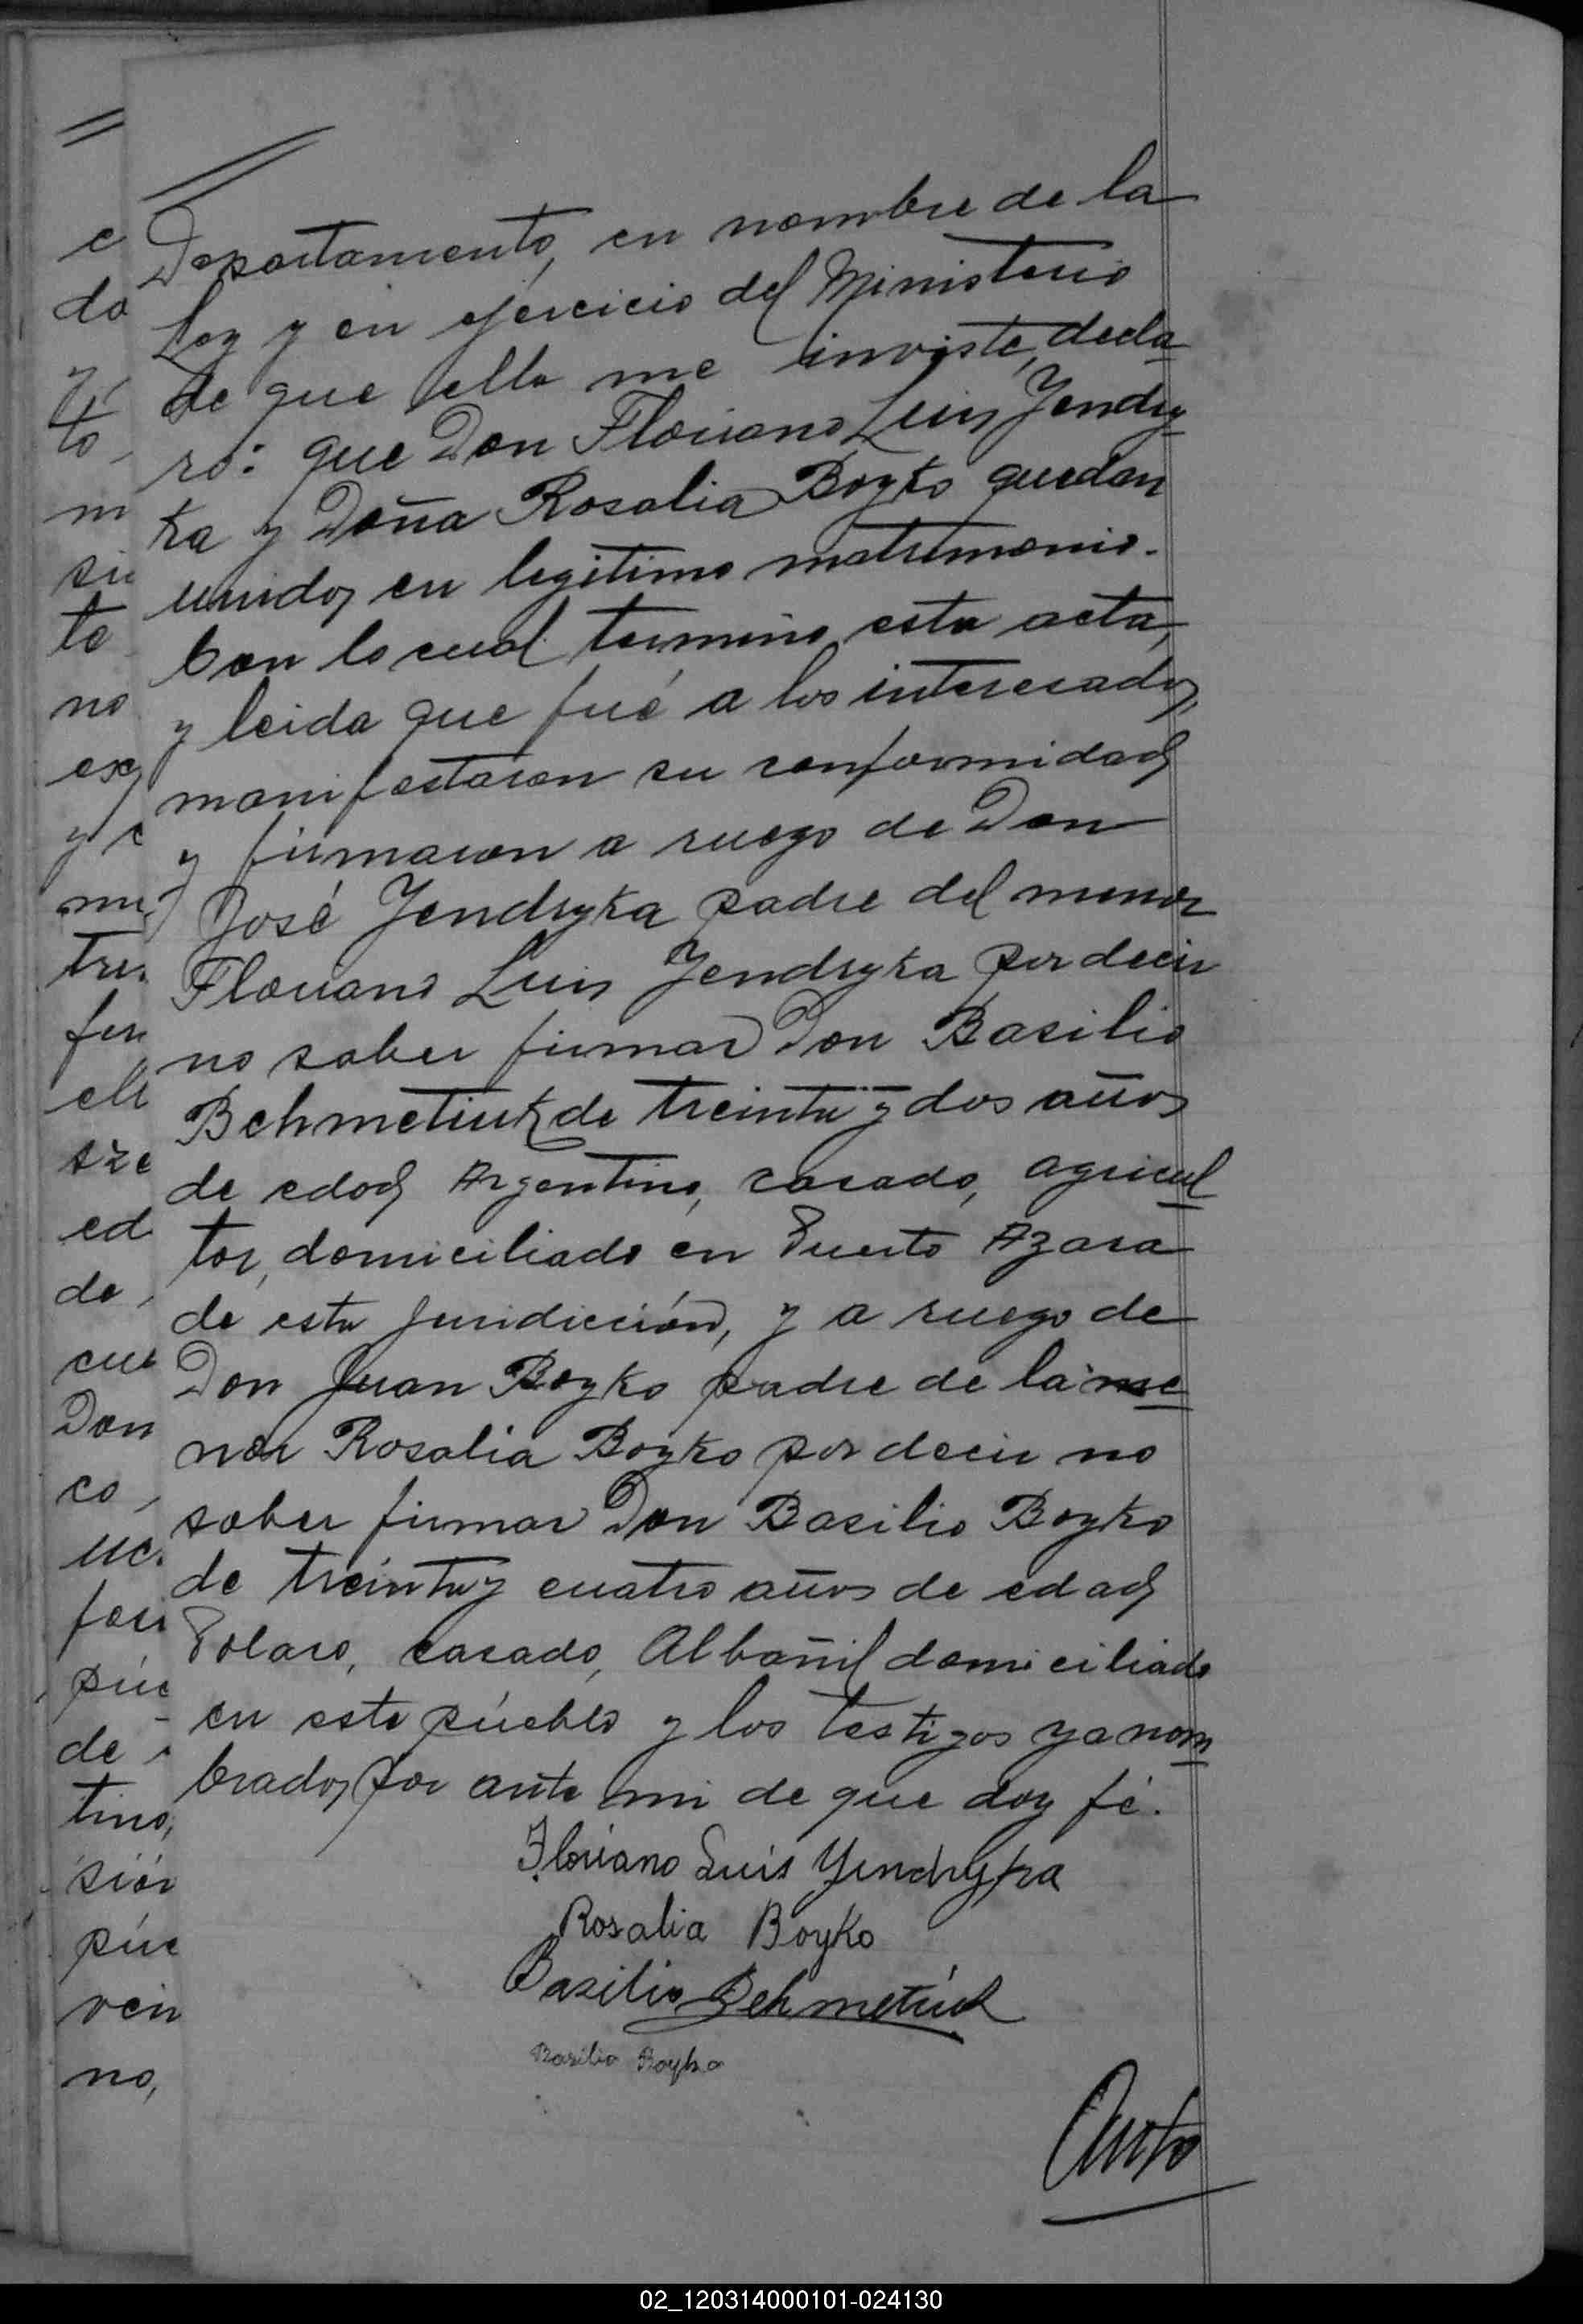 Departamento, en nombre de la
Ley y en ejercicio del Ministerio
de que ella me inviste, decla
ró: que Don Floriano Luis Jendry
ka y Doña Rosalia Boyko quedan
unidos en legitimo matrimonio.
Con lo cual termino esta acta,
y leida que fué a los interesados,
manifestaron su conformidad
y firmaron a ruego de Don
José Jendryka padre del menor
Floriano Luis Jendryka por decir
no saber firmar Don Basilio
Behmetiuk de treinta y dos años
de edad Argentino, casado, agricul
tor, domiciliado en Puerto Azara
de esta juridicción, y a ruego de
Don Juan Boyko padre de la me
nor Rosalia Boyko por decir no
saber firmar Don Basilio Boyko
de treinta y cuatro años de edad
Polaco, casado, Albañil domiciliado
en este pueblo y los testigos ya nom
brados por ante mi de que doy fé.
Floriano Luis Yendryka
Rosalia Boyko
Basilio Behmetiuk
Basilio Boyko
e
do
to
m
su
te
no
ex
y c
mu
tre
fir
eli
sze
ed
de,
cua
Don
co,
uc
fir
pue
de
tino,
sión
pue
vein
no,
02_120314000101-024130